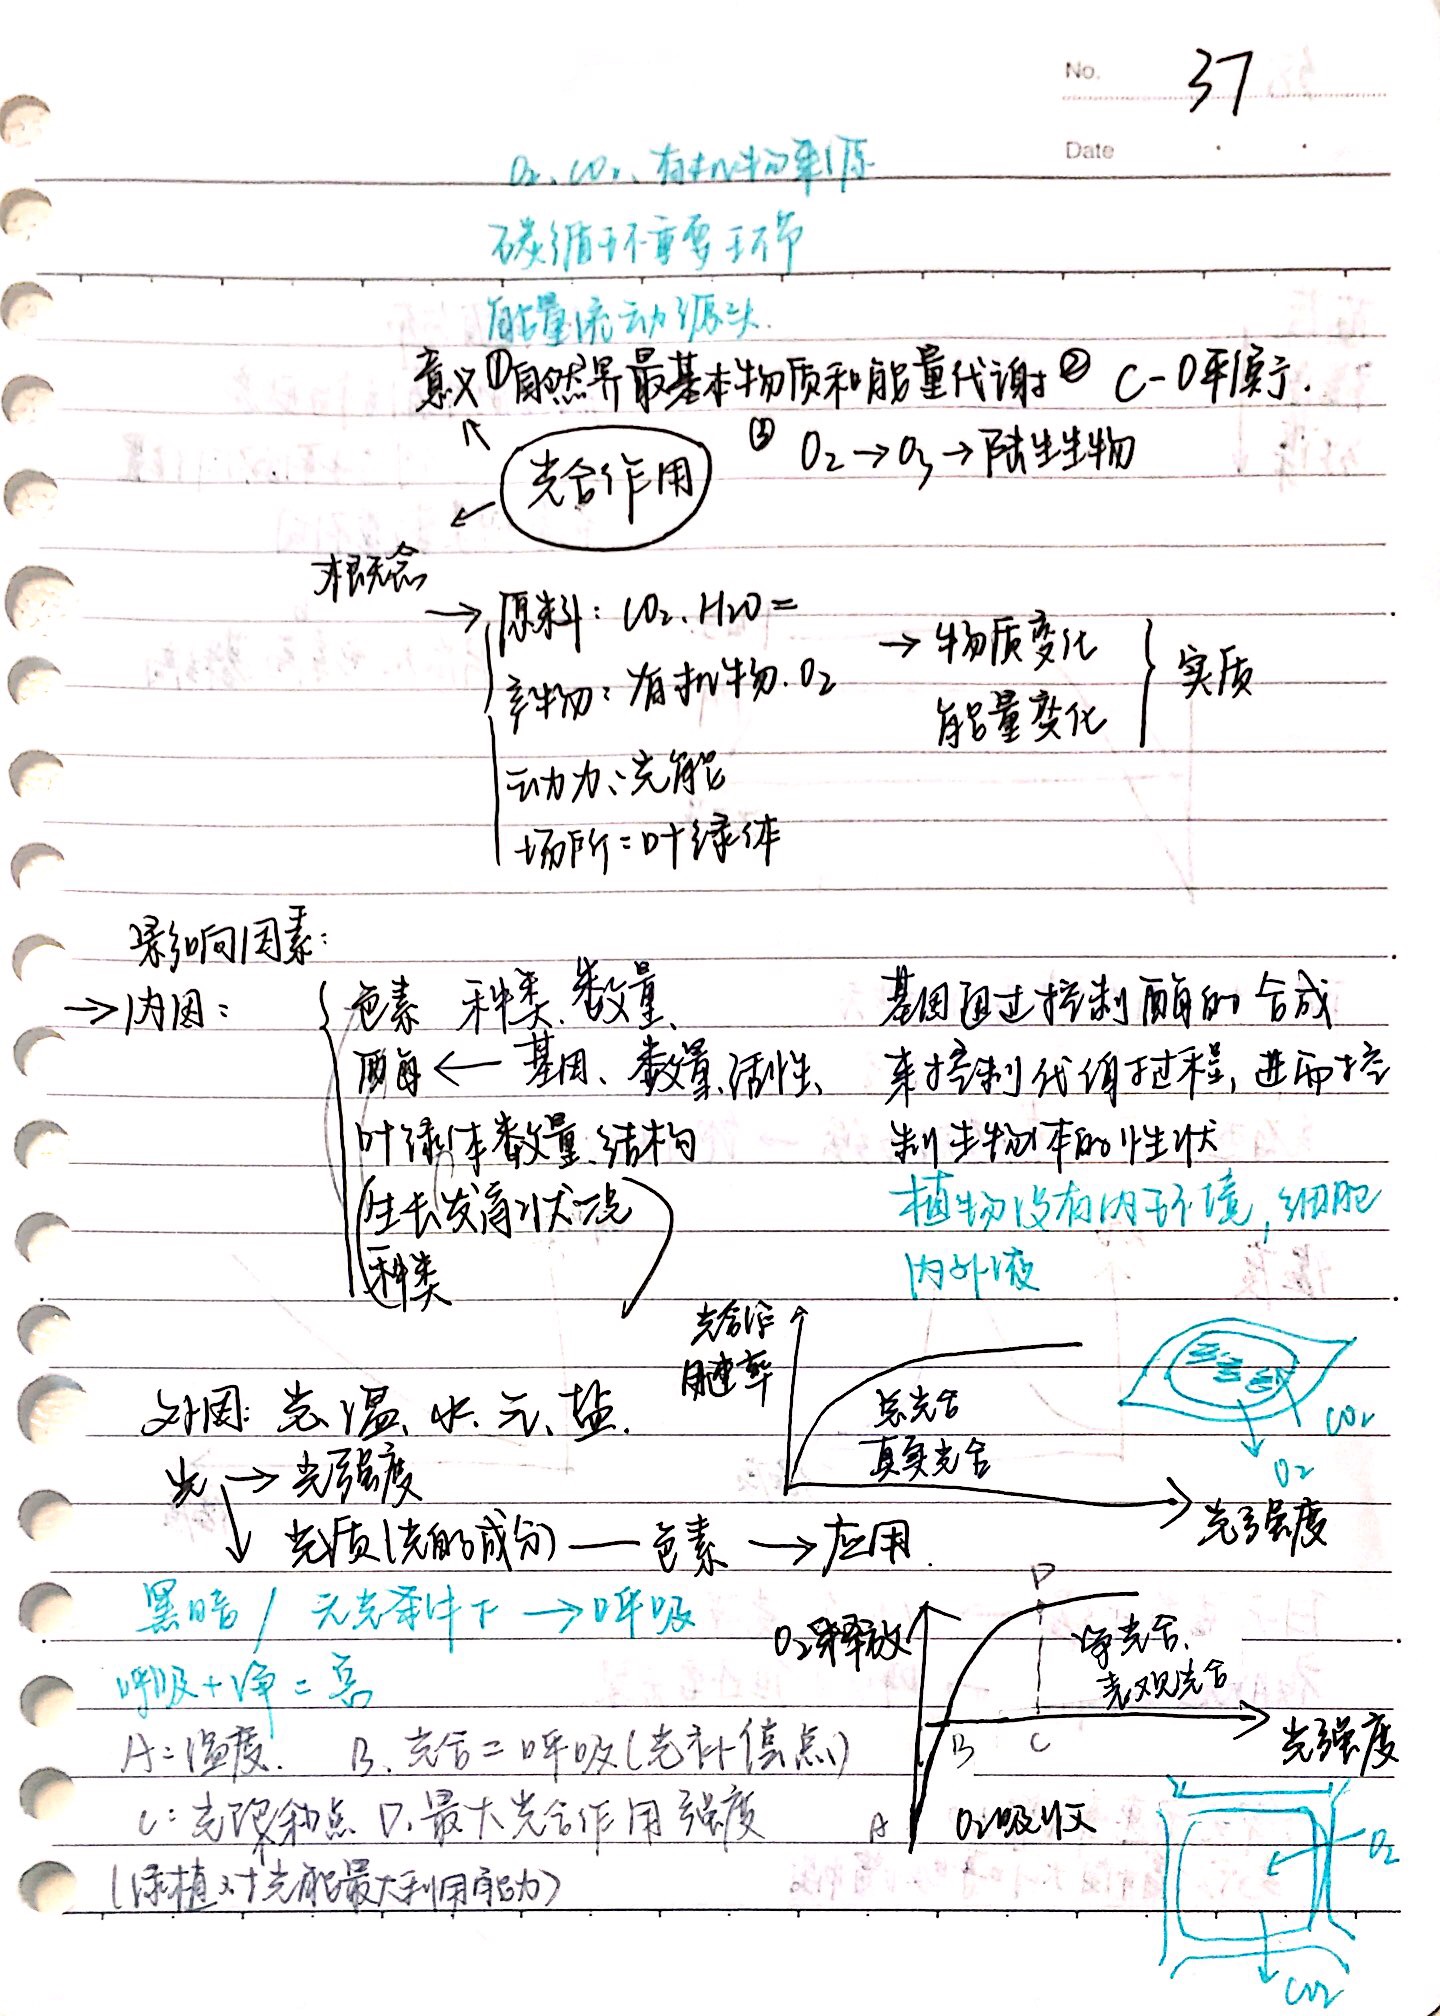 No. 37
Date
O₂、CO₂、有机物来源
碳循环重要环节
能量流动源头.
意义 ①自然界最基本物质和能量代谢 ② C-O平衡.
③ O₂→O₃→陆生生物
光合作用
概念
→ 原料: CO₂、H₂O
产物: 有机物、O₂
→ 物质变化
能量变化
实质
动力: 光能
场所: 叶绿体
影响因素:
→内因:
色素 种类、数量、
酶 ← 基因、数量、活性、
叶绿体数量、结构
(生长发育状况)
种类
基因通过控制酶的合成
来控制代谢过程, 进而控
制生物体的性状
植物没有内环境, 细胞
内外液
外因: 光、温、水、元、盐.
光 → 光强度
光质(光的成分) — 色素 → 应用.
光合作
用速率
总光合
真实光合
光强度
CO₂
O₂
黑暗/无光条件下 → 呼吸
呼吸+净=总
A:温度. B、光合=呼吸(光补偿点)
C:光饱和点 D、最大光合作用强度
(绿植对光能最大利用能力)
O₂释放
D
净光合、
表观光合
B
C
光强度
A
O₂吸收
O₂
CO₂